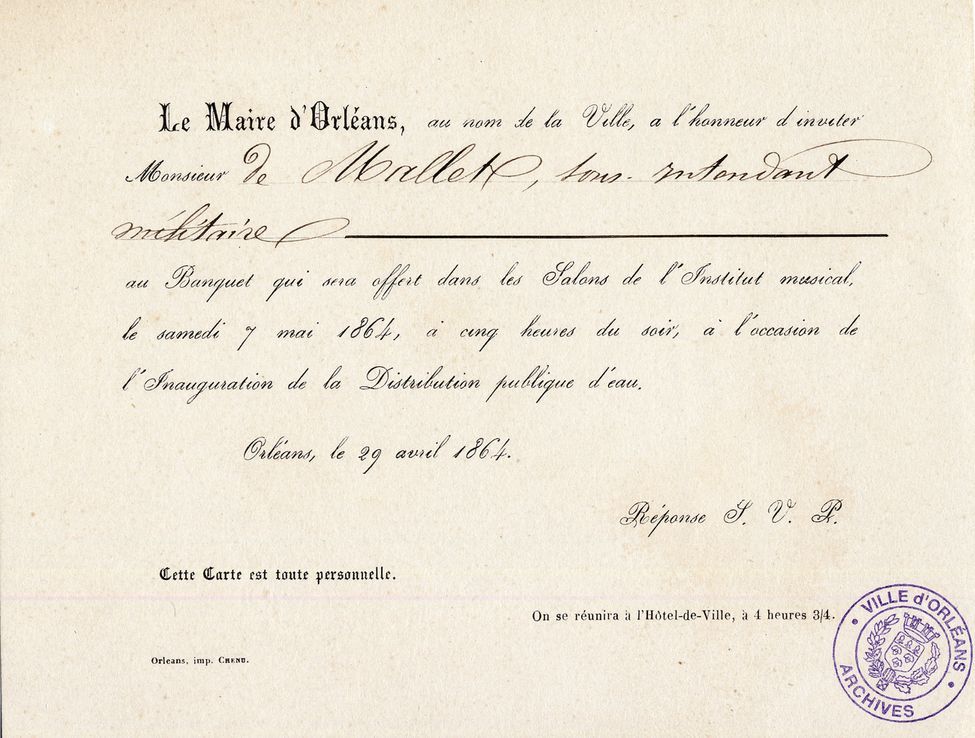 Le Maire d'Orléans, au nom de la Ville, a l'honneur d'inviter
Monsieur de Mallet, sous-intendant
militaire
au Banquet qui sera offert dans les Salons de l'Institut musical,
le samedi 7 mai 1864, à cinq heures du soir, à l'occasion de
l'Inauguration de la Distribution publique d'eau.
Orléans, le 29 avril 1864.
Réponse S. V. P.
Cette Carte est toute personnelle.
On se réunira à l'Hôtel-de-Ville, à 4 heures 3/4.
Orleans, imp. CHENU.
VILLE d'ORLÉANS
ARCHIVES